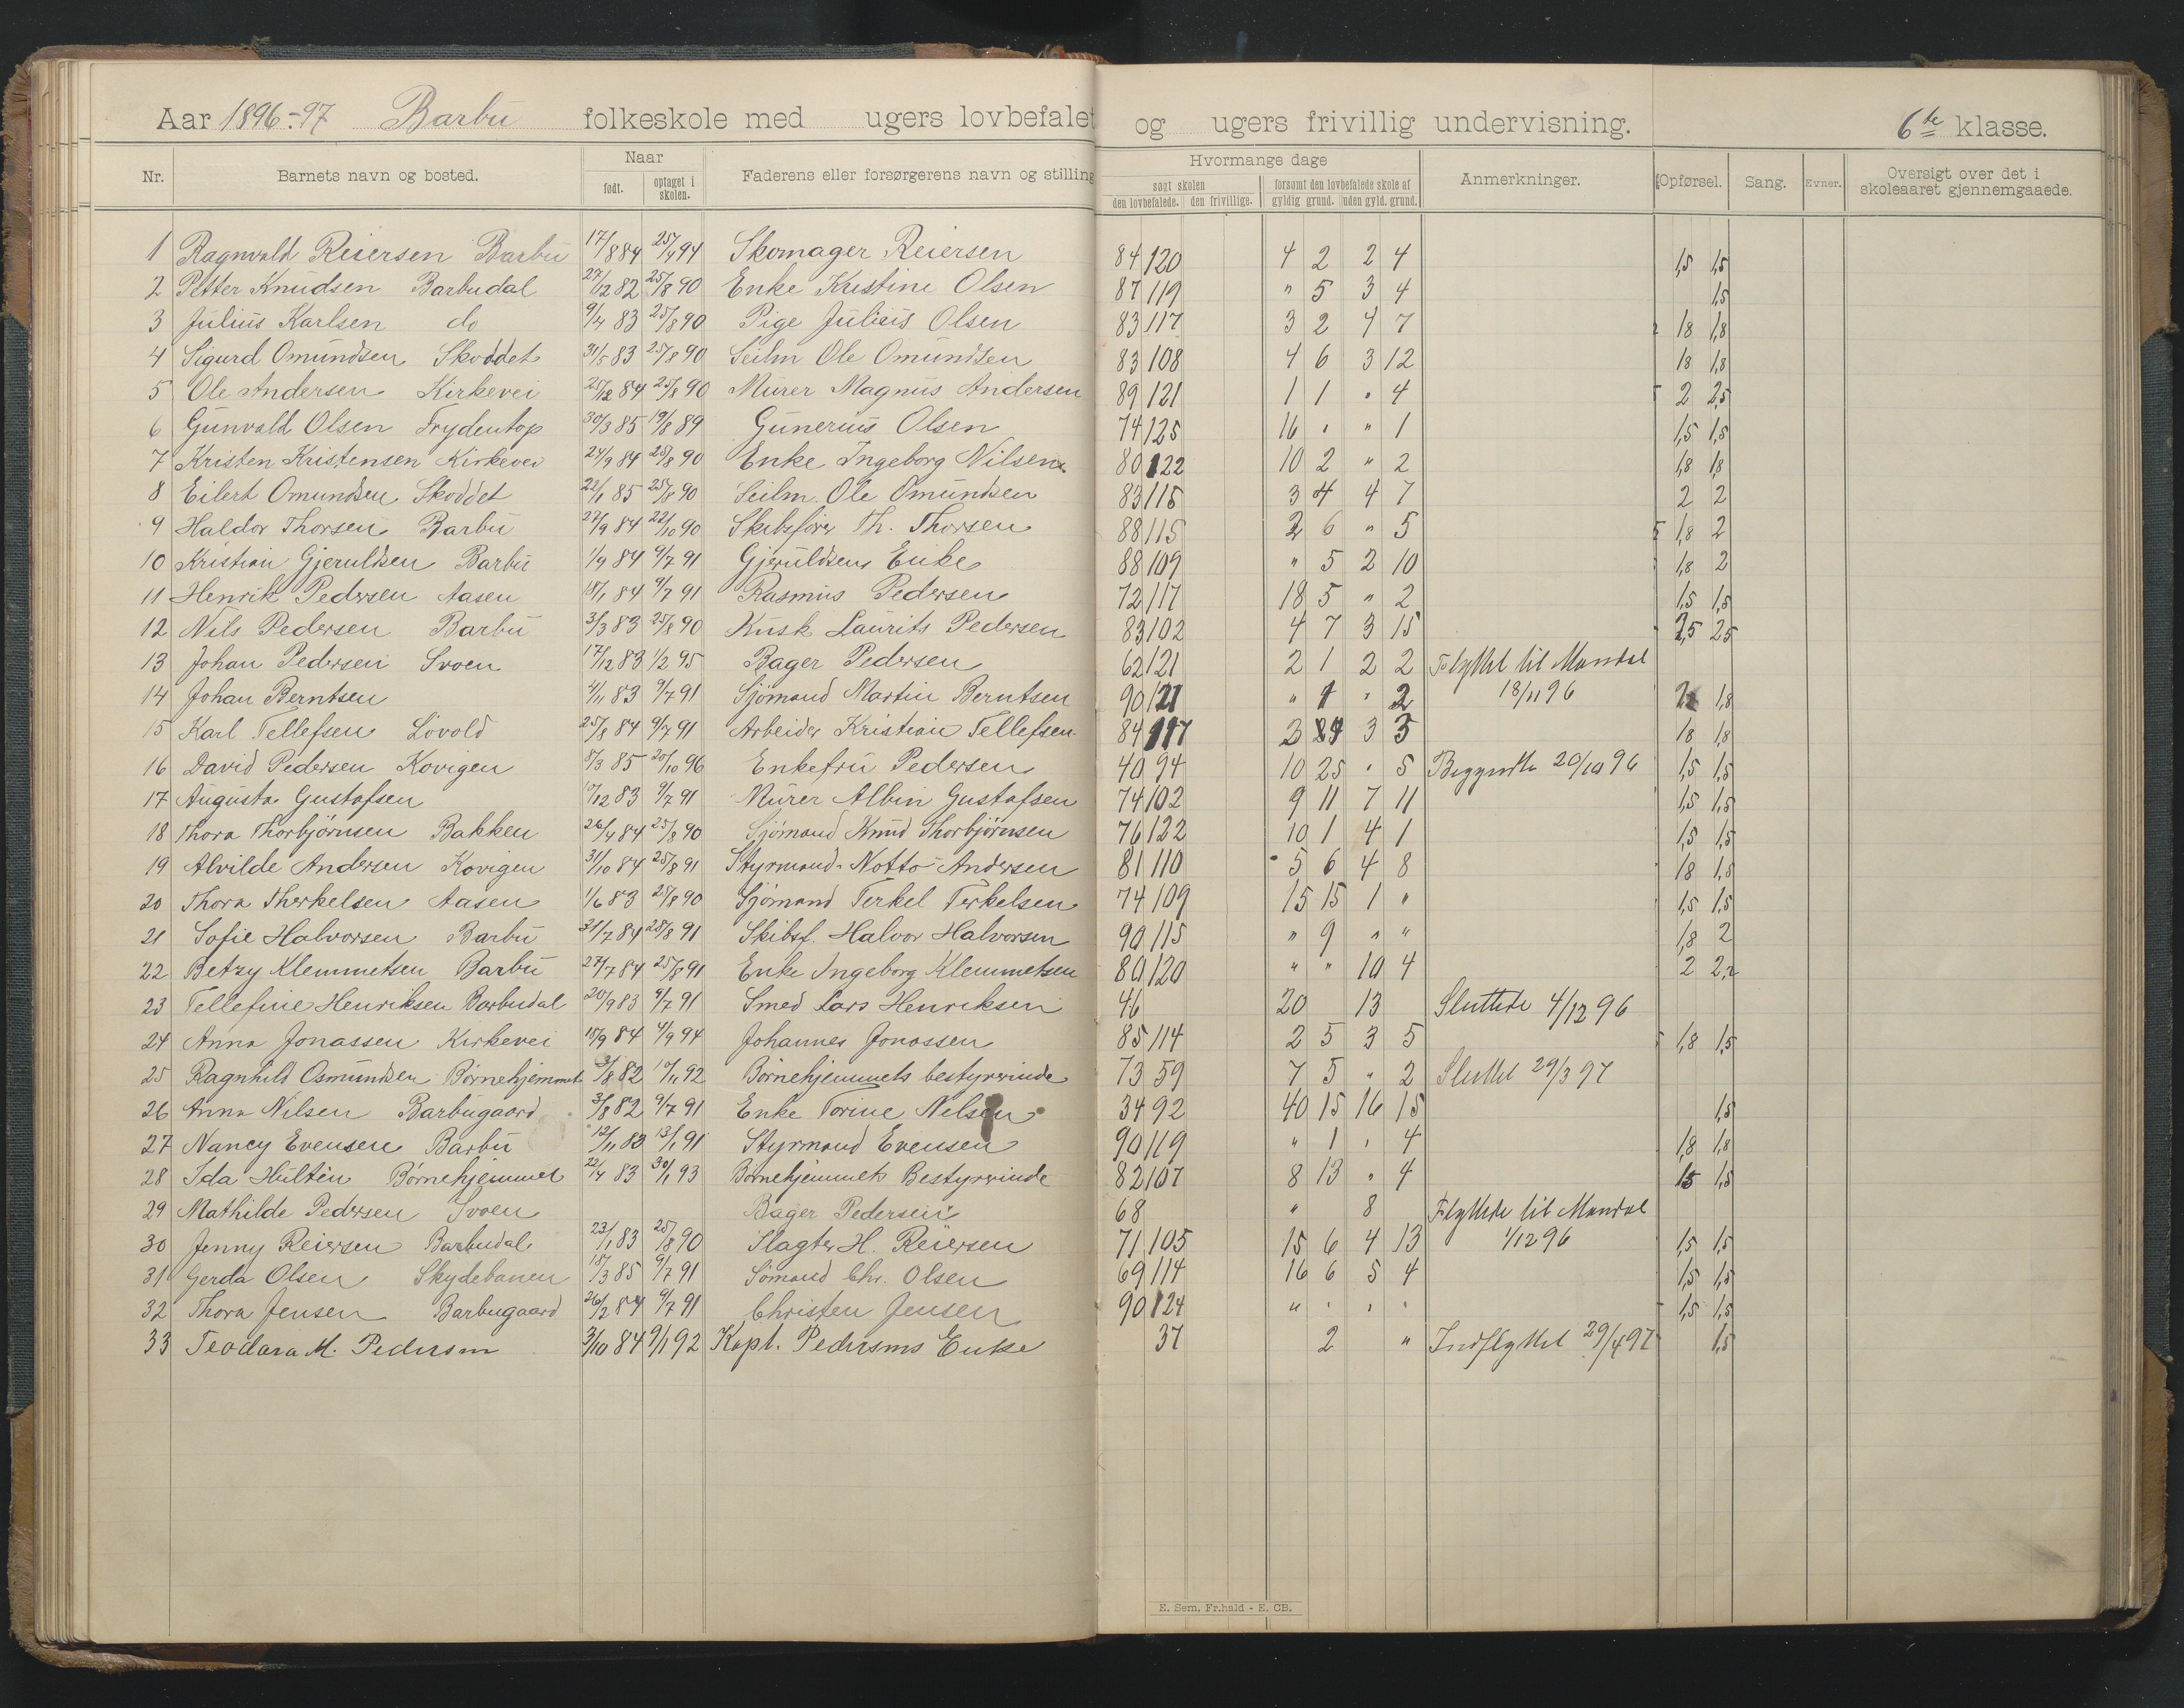 Aar 1896-97 Barbu folkeskole med ugers lovbefalet og ugers frivillig undervisning. 6te klasse.
Nr. Barnets navn og bosted. Naar født. optaget i skolen. Faderens eller forsørgerens navn og stilling Hvormange dage søgt skolen den lovbefalede. den frivillige. forsømt den lovbefalede skole af gyldig grund. uden gyld. grund. Anmerkninger. Opførsel. Sang. Evner. Oversigt over det i skoleaaret gjennemgaaede.
1 Ragnvald Reiersen Barbu 17/8 84 25/4 94 Skomager Reiersen 84 120 4 2 2 4 1,5 1,5
2 Petter Knudsen Barbudal 27/12 82 25/8 90 Enke Kristine Olsen 87 119 " 5 3 4 1,5
3 Julius Karlsen do 9/4 83 25/8 90 Pige Julisis Olsen 83 117 3 2 4 7 1,8 1,8
4 Sigurd Omundsen Skoddet 31/5 83 25/8 90 Seilm Ole Omundsen 83 108 4 6 3 12 1,8 1,8
5 Ole Andersen Kirkevei 25/12 84 25/8 90 Murer Magnus Andersen 89 121 1 1 " 4 2 2,5
6 Gunvald Olsen Frydentop 30/3 85 19/8 89 Gunerius Olsen 74 125 16 " " 1 1,5 1,5
7 Kristen Kristensen Kirkevei 24/9 84 25/8 90 Enke Ingeborg Nilsen 80 122 10 2 " 2 1,8 1,8
8 Eilert Omundsen Skoddet 22/1 85 25/8 90 Seilm. Ole Omundsen 83 115 3 4 4 7 2 2
9 Haldor Thorsen Barbu 27/9 84 22/10 90 Skibsfører Th. Thorsen 88 115 2 6 " 5 1,8 2
10 Kristian Gjeruldsen Barbu 1/9 84 9/7 91 Gjeruldsens Enke 88 109 " 5 2 10 1,8 2
11 Henrik Pedersen Aasen 18/1 84 9/7 91 Rasmus Pedersen 72 117 18 5 " 2 1,5 1,5
12 Nils Pedersen Barbu 3/3 83 25/8 90 Kusk Laurits Pedersen 83 102 4 7 3 15 2,5 2,5
13 Johan Pedersen Svoen 17/12 83 1/2 95 Bager Pedersen 62 121 2 1 2 2 Flyttet til Mandal
14 Johan Berntsen 4/11 83 9/7 91 Sjömand Martin Berntsen 90 121 " 1 " 2 18/11 96 1,8
15 Karl Tellefsen Lövold 25/8 84 9/7 91 Arbeider Kristian Tellefsen 84 117 3 3 1,8 1,8
16 David Pedersen Kovigen 8/3 85 20/10 96 Enkefru Pedersen 40 94 10 25 " 5 Begyndte 20/10 96 1,5 1,5
17 Augusta Gustafsen 83 9/7 91 Murer Albin Gustafsen 74 102 9 11 7 11 1,5 1,5
18 Thora Thorbjørnsen Bakken 26/4 84 25/8 90 Sjömand Knud Thorbjørnsen 76 122 10 1 4 1 1,5 1,5
19 Alvilde Andersen Kovigen 31/10 84 25/8 91 Styrmand Notto Andersen 81 110 5 6 4 8 1,8 1,8
20 Thora Therkelsen Aasen 1/6 83 25/8 90 Sjömand Terkel Terkelsen 74 109 15 15 1 " 1,5 1,5
21 Sofie Halvorsen Barbu 31/7 84 25/8 91 Skibsf. Halvor Halvorsen 90 115 " 9 " " 1,8 2
22 Betzy Klemmetsen Barbu 27/7 84 25/8 91 Enke Ingeborg Klemmetsen 80 120 " " 10 4 2 2,2
23 Tellefine Henriksen Barbudal 20/9 83 9/7 91 Smed Lars Henriksen 46 20 13 Sluttede 4/12 96
24 Anna Jonassen Kirkevei 18/9 84 4/9 94 Johannes Jonassen 85 114 2 5 3 5 1,8 1,5
25 Ragnhild Osmundsen Börnehjemmet 3/8 82 92 Börnehjemmets bestyrerinde 73 59 7 5 " 2 Sluttet 29/3 97
26 Anna Nilsen Barbugaard 3/8 82 9/7 91 Enke Torine Nelsen 34 92 40 15 16 15 1,5
27 Nancy Evensen Barbu 12/11 83 13/1 91 Styrmand Evensen 90 119 " 1 " 4 1,8 1,8
28 Ida Hultén Börnehjemmet 22/4 83 30/1 93 Börnehjemmets Bestyrerinde 82 107 8 13 " 4 1,5 1,5
29 Mathilde Pedersen Svoen Bager Pedersen 68 " 8 Flyttede til Mandal
30 Jenny Reiersen Barbudal 23/1 83 25/8 90 Slagter H. Reiersen 71 105 15 6 4 13 1/12 96 1,5 1,5
31 Gerda Olsen Skydebanen 18/3 85 9/7 91 Sömand Chr. Olsen 69 114 16 6 5 4 1,5 1,5
32 Thora Jensen Barbugaard 26/2 84 9/7 91 Christen Jensen 90 124 " " " " 1,5 1,5
33 Teodara M. Pedersen 3/10 84 9/1 92 Kapt. Pedersens Enke 37 2 " Indflyttet 29/4 97 1,5
E. Sem, Fr.hald - E. CB.